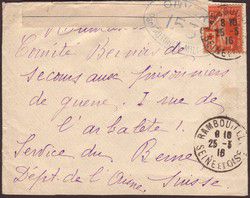 Comité Bernois de
secours aux prisonniers
de guerre, 1 rue de
l'arbalete!
Service du Berne
Dépt. de l'Orne, Suisse
RAMBOUILLET
8 10
25-5
16
SEINE ET OISE
RAMBOUILLET
8 10
25-5
16